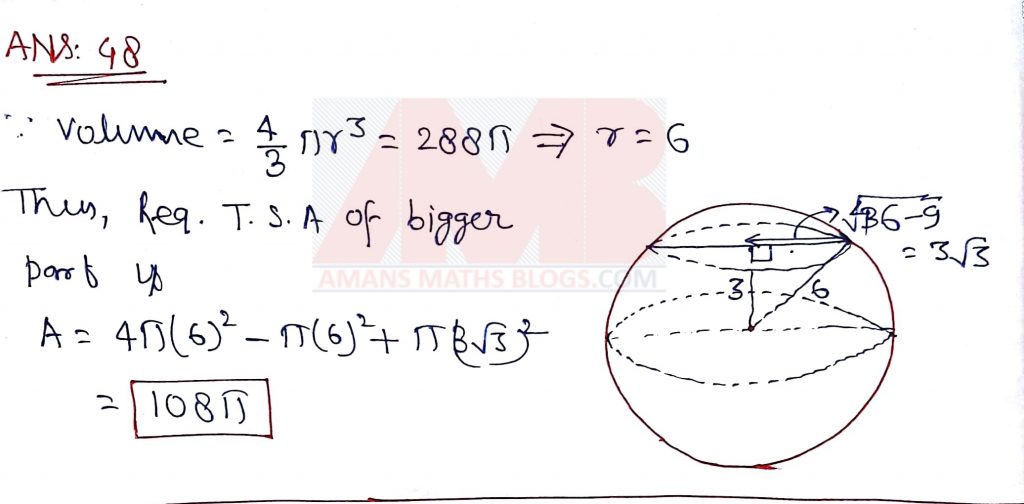 ANS: 48
∵ Volume = 4/3 πr³ = 288π ⇒ r = 6
Thus, Req. T.S.A of bigger
part is
A = 4π(6)² - π(6)² + π(3√3)²
= 108π
√36-9
= 3√3
3
6
AMB
AMANS MATHS BLOGS.COM